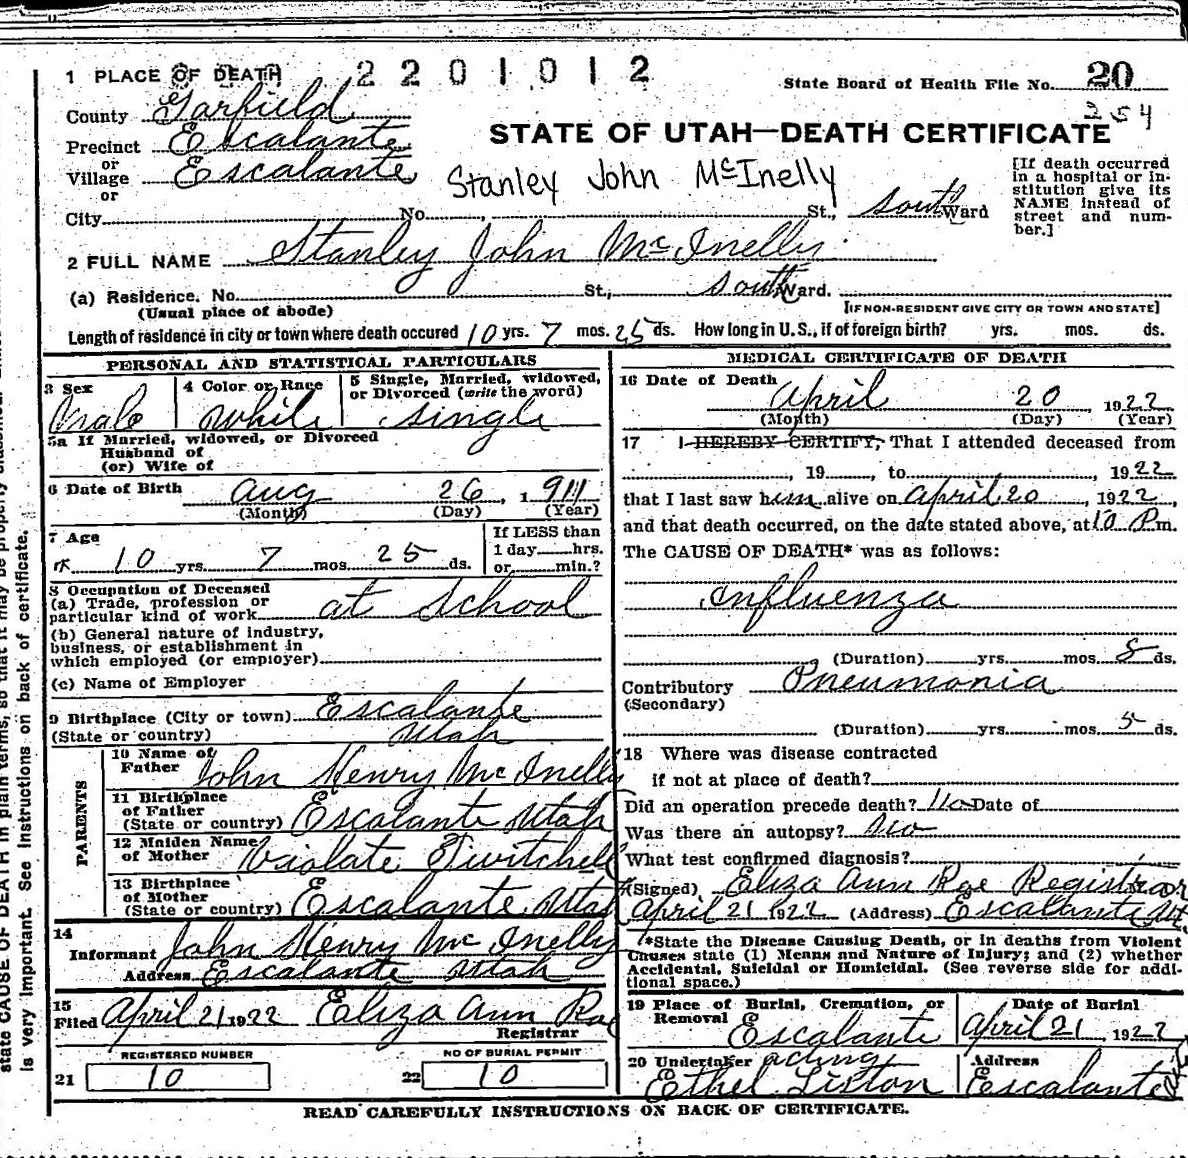 1 PLACE OF DEATH 2201012 State Board of Health File No. 20
254
County Garfield
STATE OF UTAH—DEATH CERTIFICATE
Precinct Escalante
or
Village Escalante
or
Stanley John McInelly
[If death occurred
in a hospital or in-
stitution give its
NAME instead of
street and num-
ber.]
City No. , St., South Ward
2 FULL NAME Stanley John McInelly
(a) Residence. No. St., South Ward.
(Usual place of abode) [IF NON-RESIDENT GIVE CITY OR TOWN AND STATE]
Length of residence in city or town where death occured 10 yrs. 7 mos. 25 ds. How long in U.S., if of foreign birth? yrs. mos. ds.
PERSONAL AND STATISTICAL PARTICULARS
3 Sex Male
4 Color or Race White
5 Single, Married, widowed,
or Divorced (write the word)
Single
5a If Married, widowed, or Divorced
Husband of
(or) Wife of
6 Date of Birth Aug 26, 1911
(Month) (Day) (Year)
7 Age
10 yrs. 7 mos. 25 ds.
If LESS than
1 day hrs.
or min.?
8 Occupation of Deceased
(a) Trade, profession or
particular kind of work at School
(b) General nature of industry,
business, or establishment in
which employed (or employer)
(c) Name of Employer
9 Birthplace (City or town) Escalante
(State or country) Utah
PARENTS
10 Name of
Father John Henry McInelly
11 Birthplace
of Father
(State or country) Escalante Utah
12 Maiden Name
of Mother Violate Twitchell
13 Birthplace
of Mother
(State or country) Escalante, Utah
14
Informant John Henry McInelly
Address Escalante Utah
15
Filed April 21 1922 Eliza Ann Roe
Registrar
REGISTERED NUMBER NO OF BURIAL PERMIT
21 10 22 10
MEDICAL CERTIFICATE OF DEATH
16 Date of Death April 20 1922
(Month) (Day) (Year)
17 I HEREBY CERTIFY, That I attended deceased from
, 19 , to , 1922
that I last saw him alive on April 20, 1922,
and that death occurred, on the date stated above, at 10 P m.
The CAUSE OF DEATH* was as follows:
Influenza
(Duration) yrs. mos. 8 ds.
Contributory Pneumonia
(Secondary)
(Duration) yrs. mos. 5 ds.
18 Where was disease contracted
if not at place of death?
Did an operation precede death? No Date of
Was there an autopsy? No
What test confirmed diagnosis?
(Signed) Eliza Ann Roe Registrar
April 21 1922 (Address) Escalante Ut
*State the Disease Causing Death, or in deaths from Violent
Causes state (1) Means and Nature of Injury; and (2) whether
Accidental, Suicidal or Homicidal. (See reverse side for addi-
tional space.)
19 Place of Burial, Cremation, or
Removal Escalante
Date of Burial
April 21, 1922
20 Undertaker acting
Ethel Liston
Address
Escalante
READ CAREFULLY INSTRUCTIONS ON BACK OF CERTIFICATE.
state CAUSE OF DEATH in plain terms, so that it may be properly
is very important. See instructions on back of certificate.